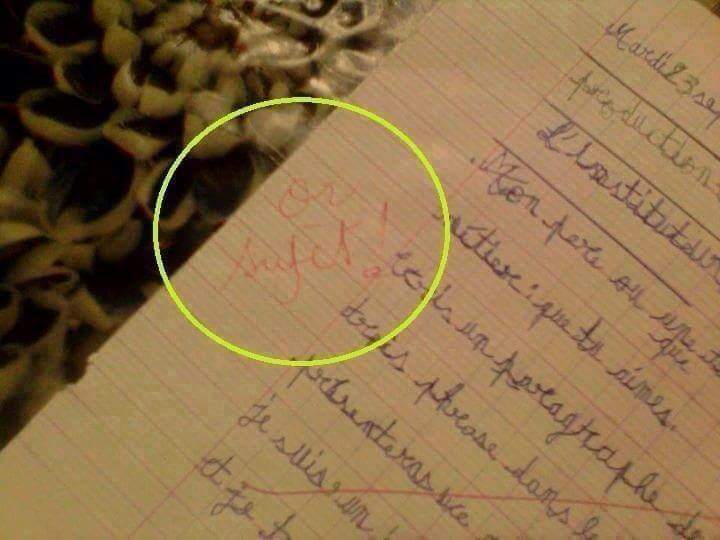 Mardi 23 sep
production
L'instituteur
or
sujet!
Mon pere ou une
métier : que tu aimes.
que
Ecris un paragraphe de
trois phrase dans le
présenteras
Je suis un
et
Je